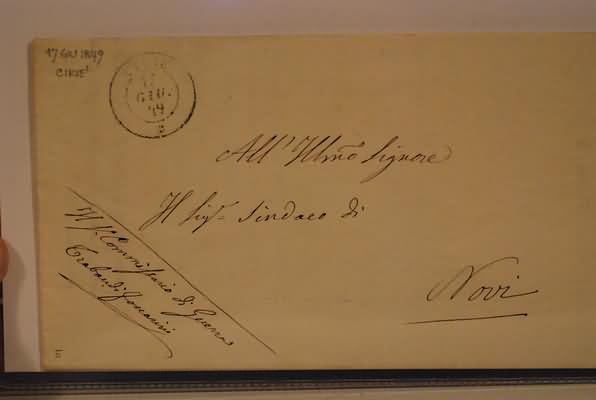 17 GIU 1849
CIRIE'
GIU.
All' Illmo Signore
Il Sigr Sindaco di
Novi
Commissario di Guerra
10